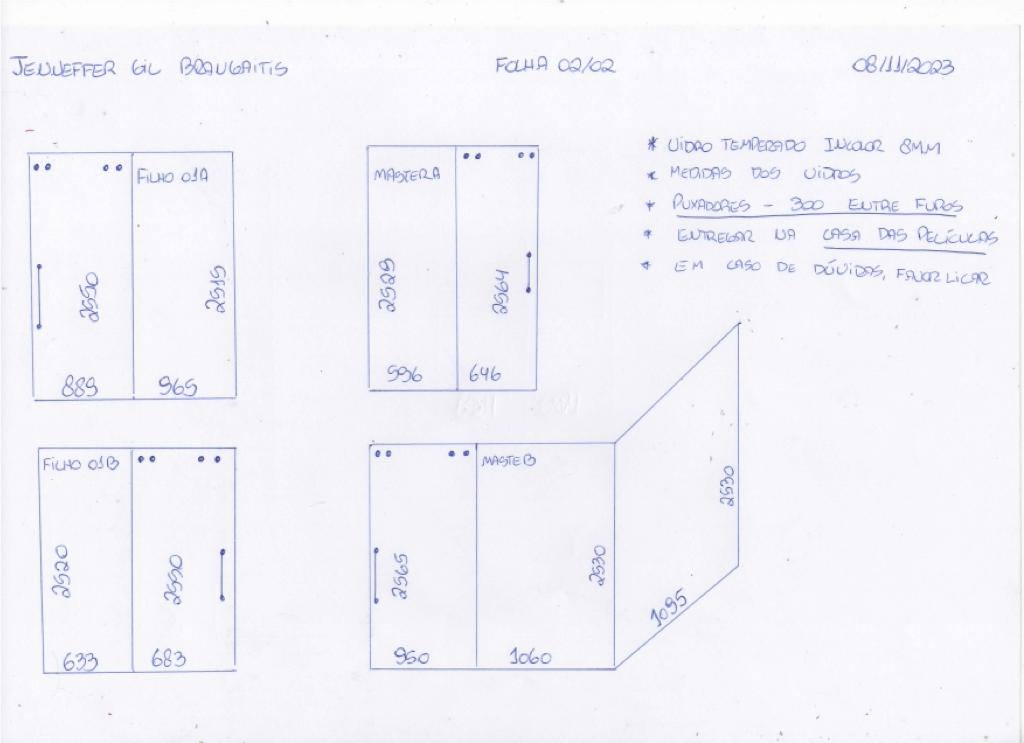 JENNEFFER GIL BRAUGAITIS
FOLHA 02/02
08/11/2023
* VIDRO TEMPERADO INCOLOR 8MM
* MEDIDAS DOS VIDROS
* PUXADORES - 300 ENTRE FUROS
* ENTREGAR NA CASA DAS PELÍCULAS
* EM CASO DE DÚVIDAS, FAVOR LIGAR
FILHO 01A
2550
2515
889
965
MASTER A
2529
2564
596
646
FILHO 01B
2520
2550
633
683
MASTEB
2565
2530
2530
950
1060
1095